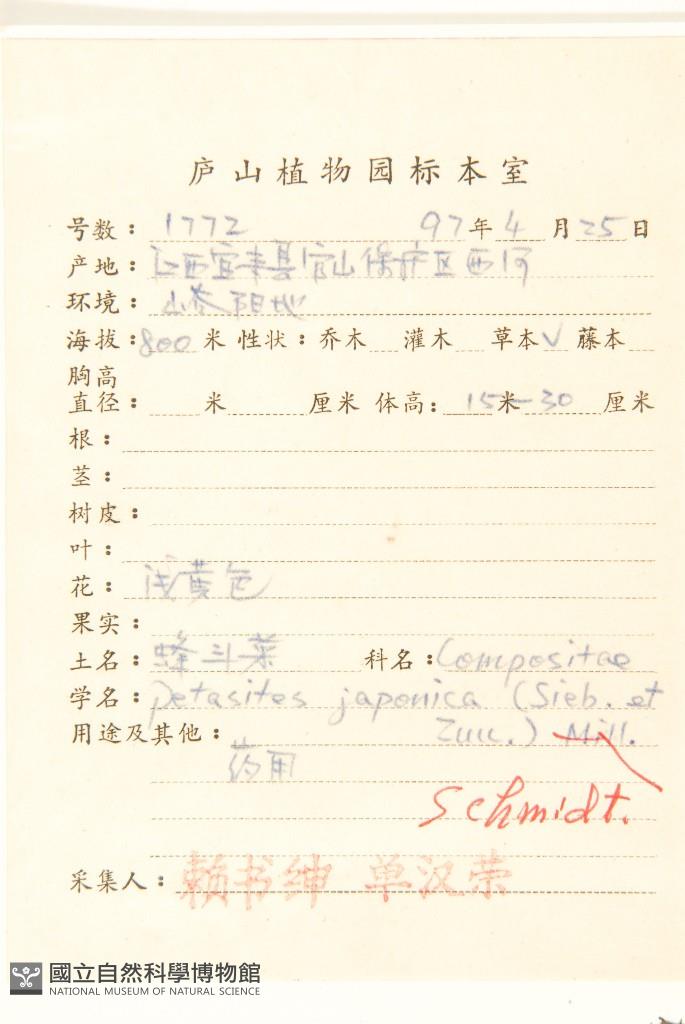 庐山植物园标本室
号数：1772 97年4月25日
产地：江西宜丰县官山保护区西河
环境：山谷阳地
海拔：800米 性状：乔木 灌木 草本√ 藤本
胸高
直径： 米 厘米 体高： 15米—30 厘米
根：
茎：
树皮：
叶：
花：浅黄色
果实：
土名：蜂斗菜 科名：Compositae
学名：Petasites japonica (Sieb. et
用途及其他： Zucc.) Mill.
药用
Schmidt.
采集人：赖书绅 单汉荣
國立自然科學博物館
NATIONAL MUSEUM OF NATURAL SCIENCE